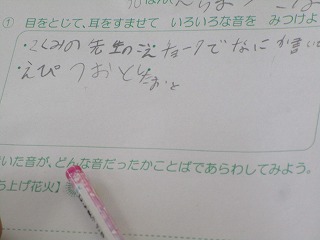 ① 目をとじて、耳をすませて いろいろな音を みつけよ
・2くみの先生のこえ チョークでなにか書い
・えんぴつおとしたおと
いた音が、どんな音だったかことばであらわしてみよう。
ち上げ花火】